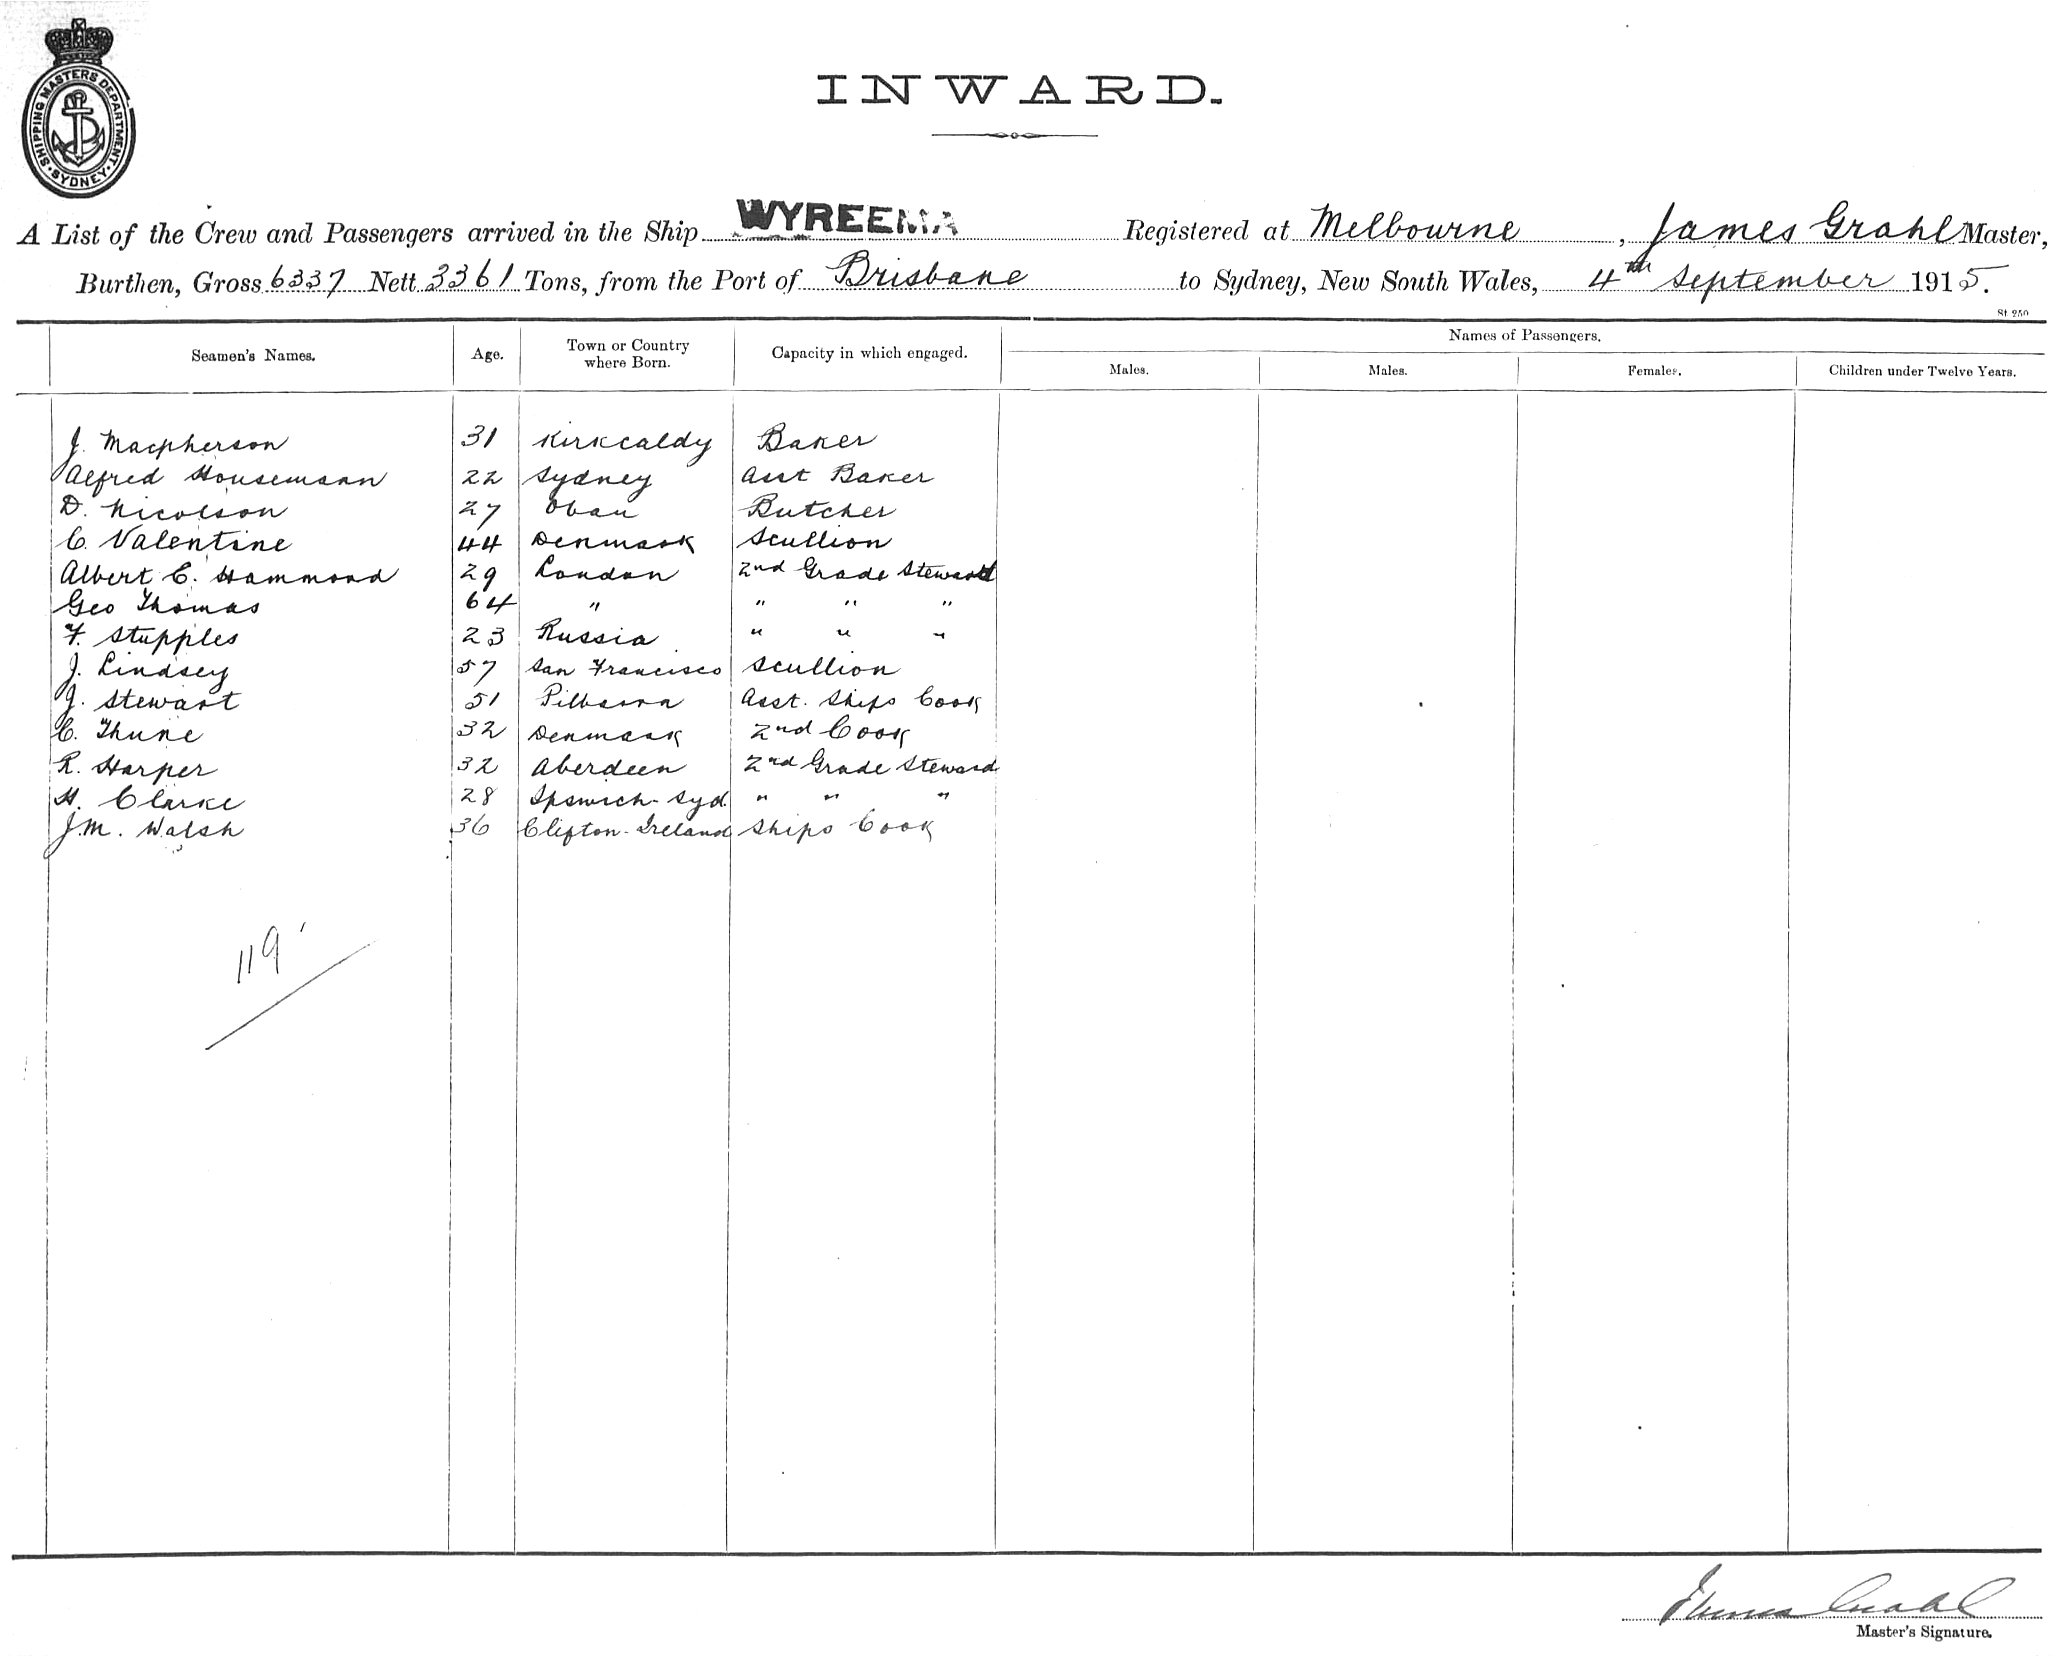 SHIPPING MASTERS DEPARTMENT
SYDNEY
INWARD.
A List of the Crew and Passengers arrived in the Ship WYREEMA Registered at Melbourne, James Grahl Master,
Burthen, Gross 6337 Nett 3361 Tons, from the Port of Brisbane to Sydney, New South Wales, 4th September 1915.
St 250
Seamen's Names. Age. Town or Country where Born. Capacity in which engaged. Names of Passengers.
Males. Males. Females. Children under Twelve Years.
J. Macpherson 31 Kirkcaldy Baker
Alfred Housemann 22 Sydney Asst Baker
D. Nicolson 27 Oban Butcher
C. Valentine 44 Denmark Scullion
Albert C. Hammond 29 London 2nd Grade Steward
Geo Thomas 64 " " " "
F. Stupples 23 Russia " " "
J. Lindsey 57 San Francisco Scullion
J. Stewart 51 Pilbarra Asst. Ships Cook
C. Thune 32 Denmark 2nd Cook
R. Harper 32 Aberdeen 2nd Grade Steward
H. Clarke 28 Ipswich-Syd. " " "
J.M. Walsh 36 Clifton-Ireland Ships Cook
119
James Grahl
Master's Signature.